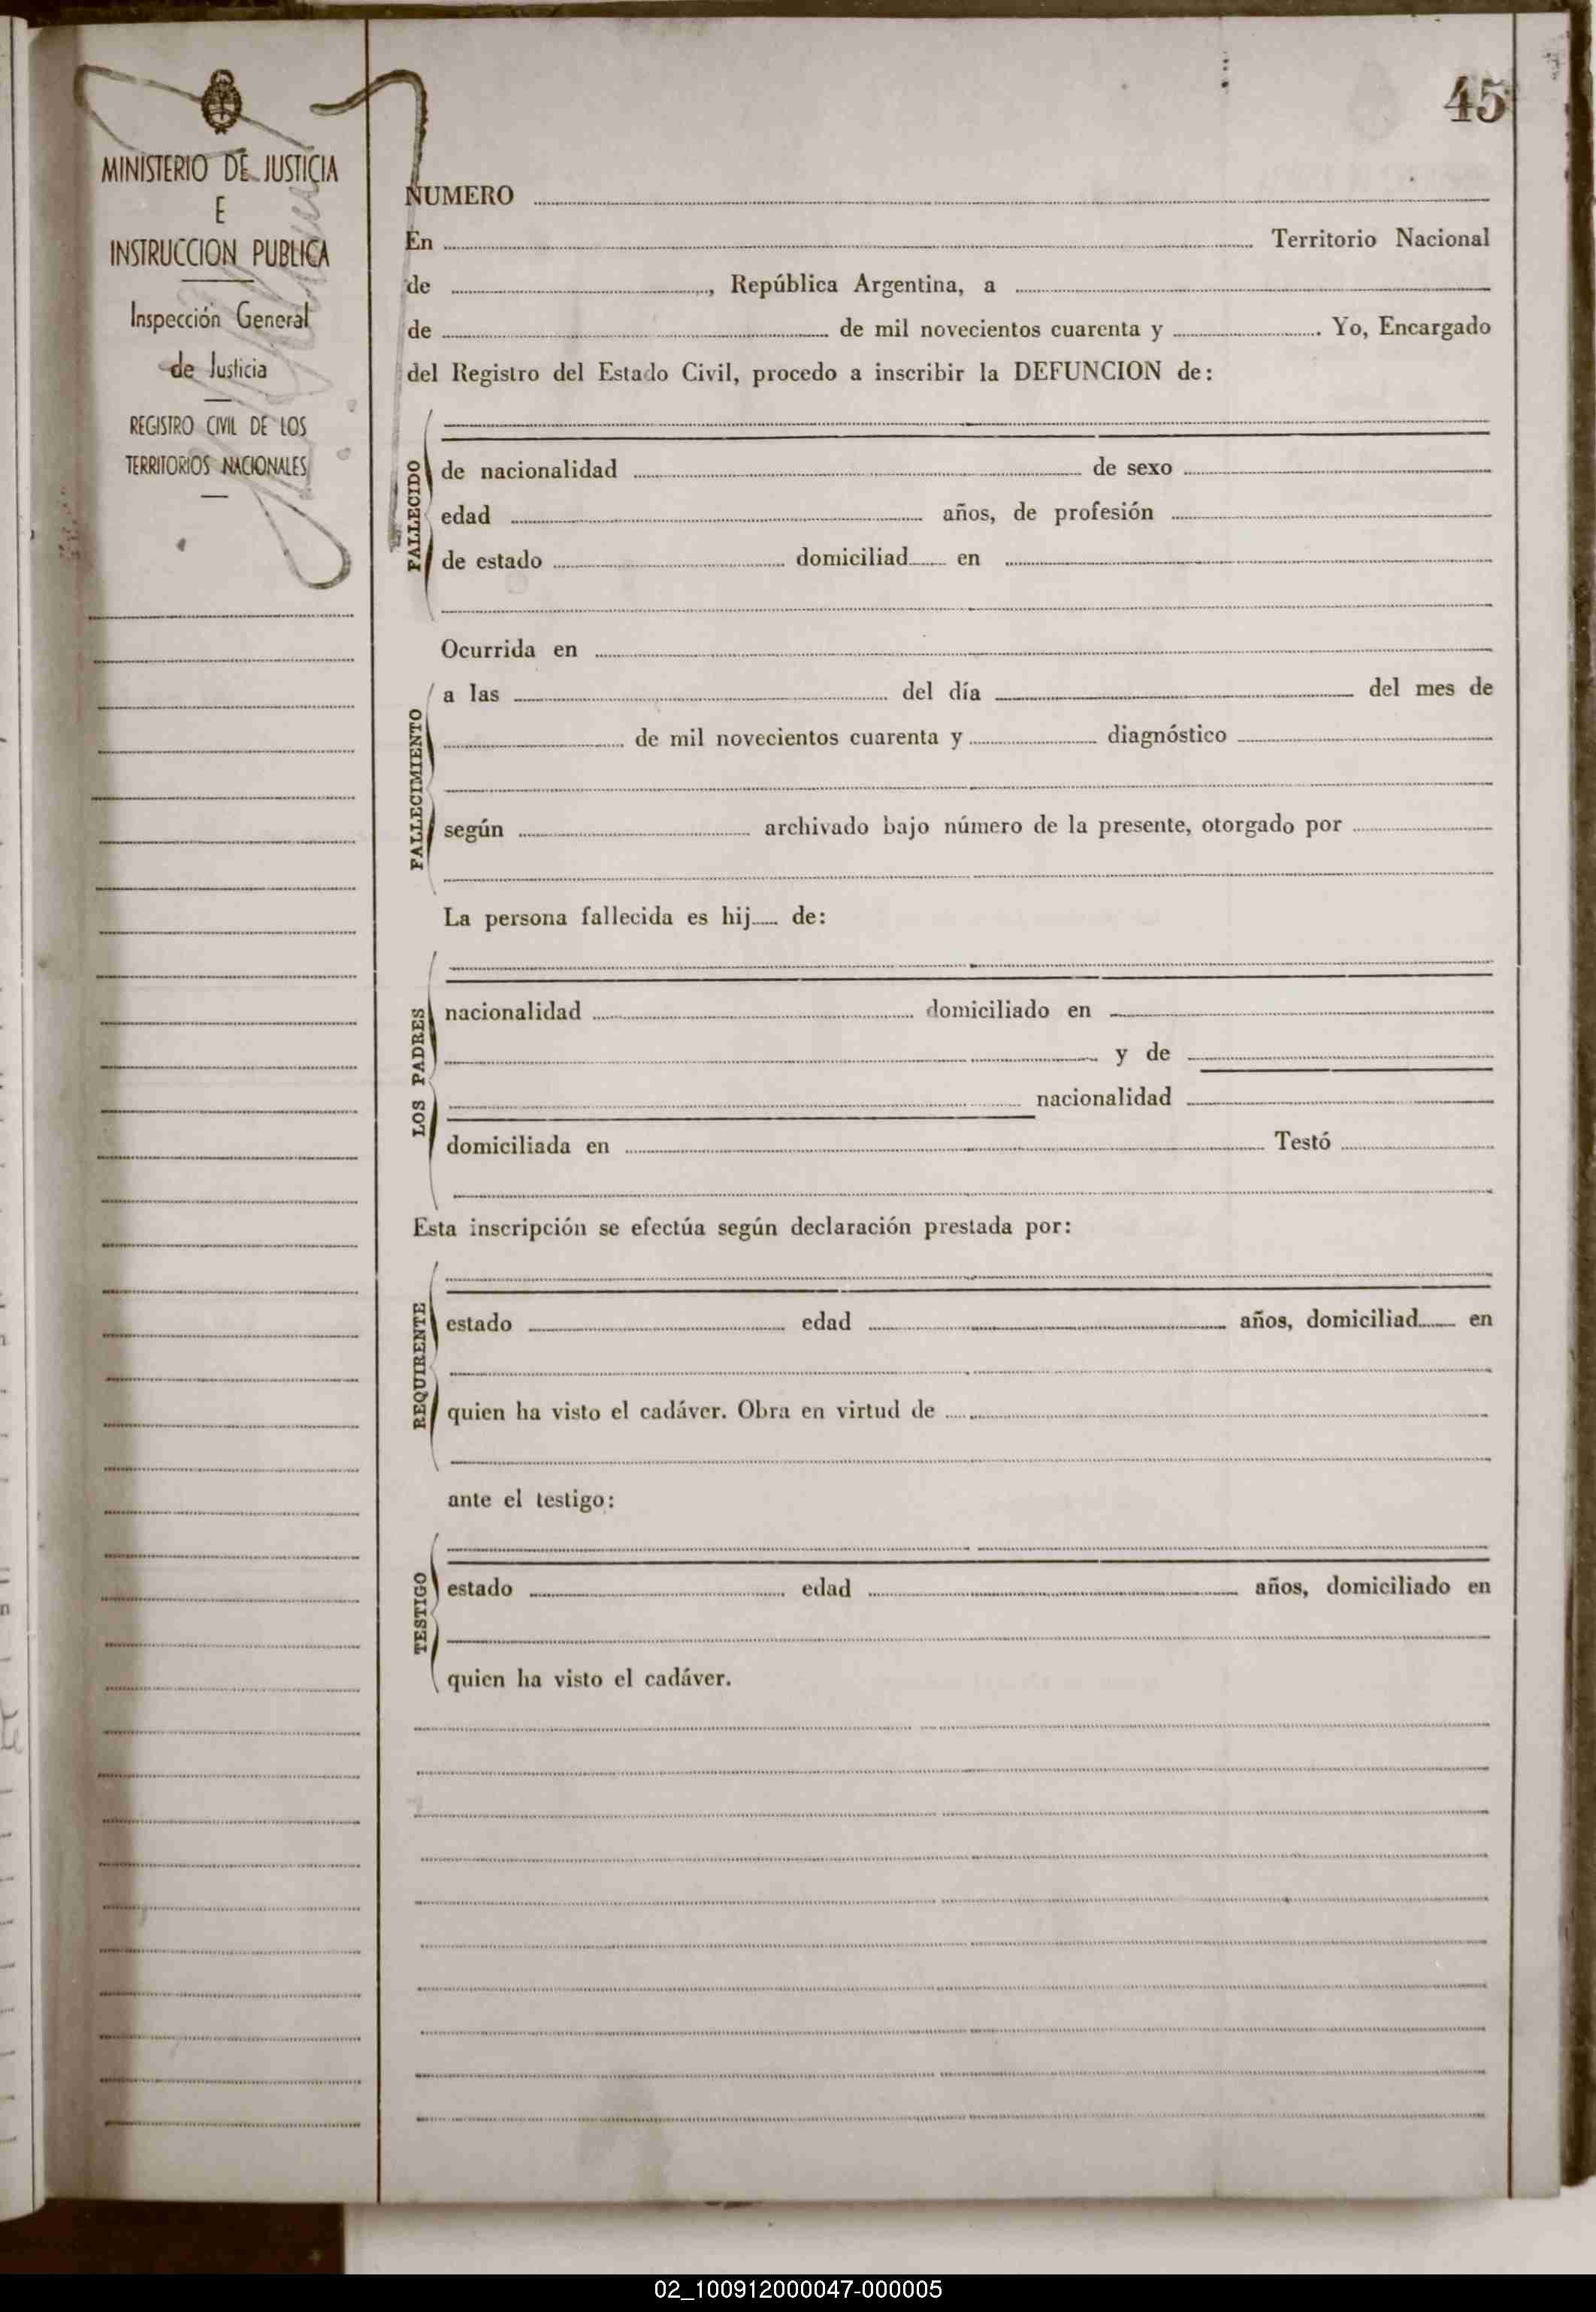 45
MINISTERIO DE JUSTICIA
E
INSTRUCCION PUBLICA
Inspección General
de Justicia
REGISTRO CIVIL DE LOS
TERRITORIOS NACIONALES
NUMERO
En Territorio Nacional
de , República Argentina, a
de de mil novecientos cuarenta y . Yo, Encargado
del Registro del Estado Civil, procedo a inscribir la DEFUNCION de:
FALLECIDO
de nacionalidad de sexo
edad años, de profesión
de estado domiciliad en
Ocurrida en
FALLECIMIENTO
a las del día del mes de
de mil novecientos cuarenta y diagnóstico
según archivado bajo número de la presente, otorgado por
La persona fallecida es hij de:
LOS PADRES
nacionalidad domiciliado en
y de
nacionalidad
domiciliada en Testó
Esta inscripción se efectúa según declaración prestada por:
REQUIRENTE
estado edad años, domiciliad en
quien ha visto el cadáver. Obra en virtud de
ante el testigo:
TESTIGO
estado edad años, domiciliado en
quien ha visto el cadáver.
02_100912000047-000005